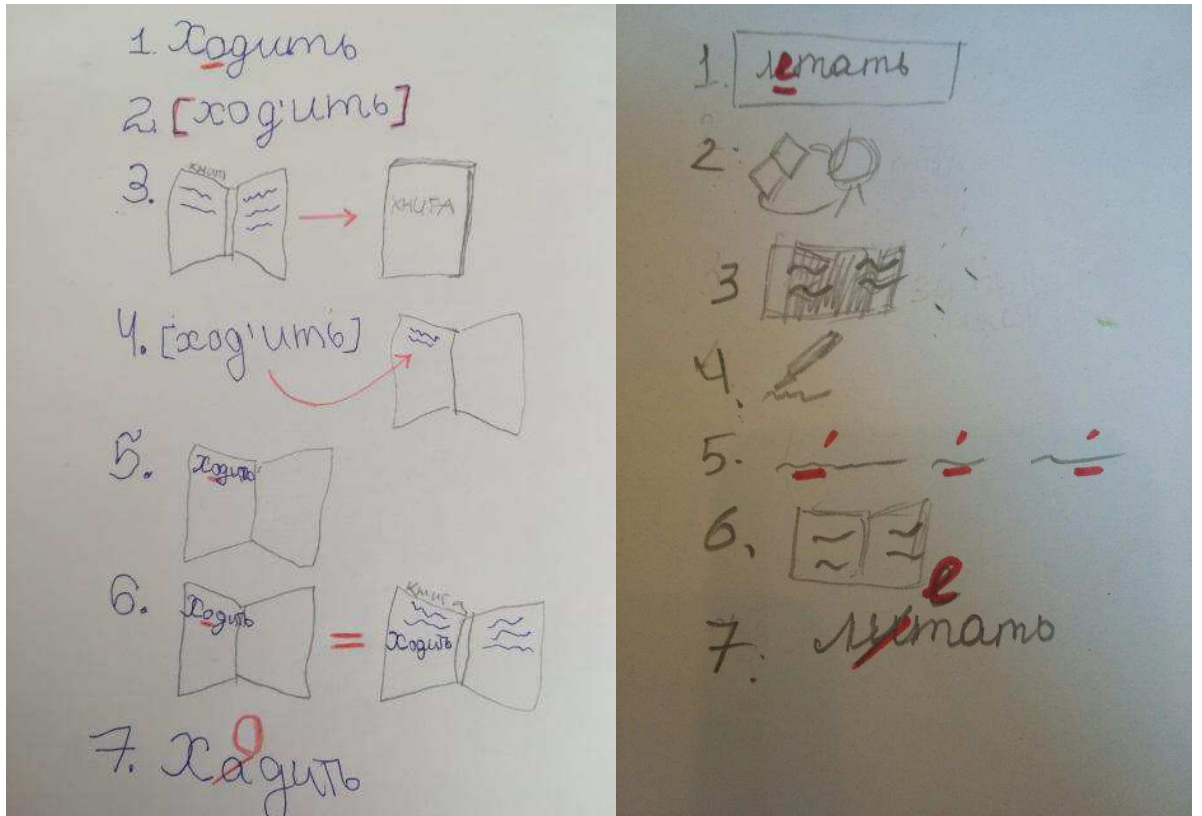 1. Ходить
2. [ход'ить]
3.
КНИГА
4. [ход'ить]
5.
Ходить
6.
Ходить
Книга
Ходить
7. Хадить
о
1. летать
2.
3
4.
5.
6.
7. литать
е